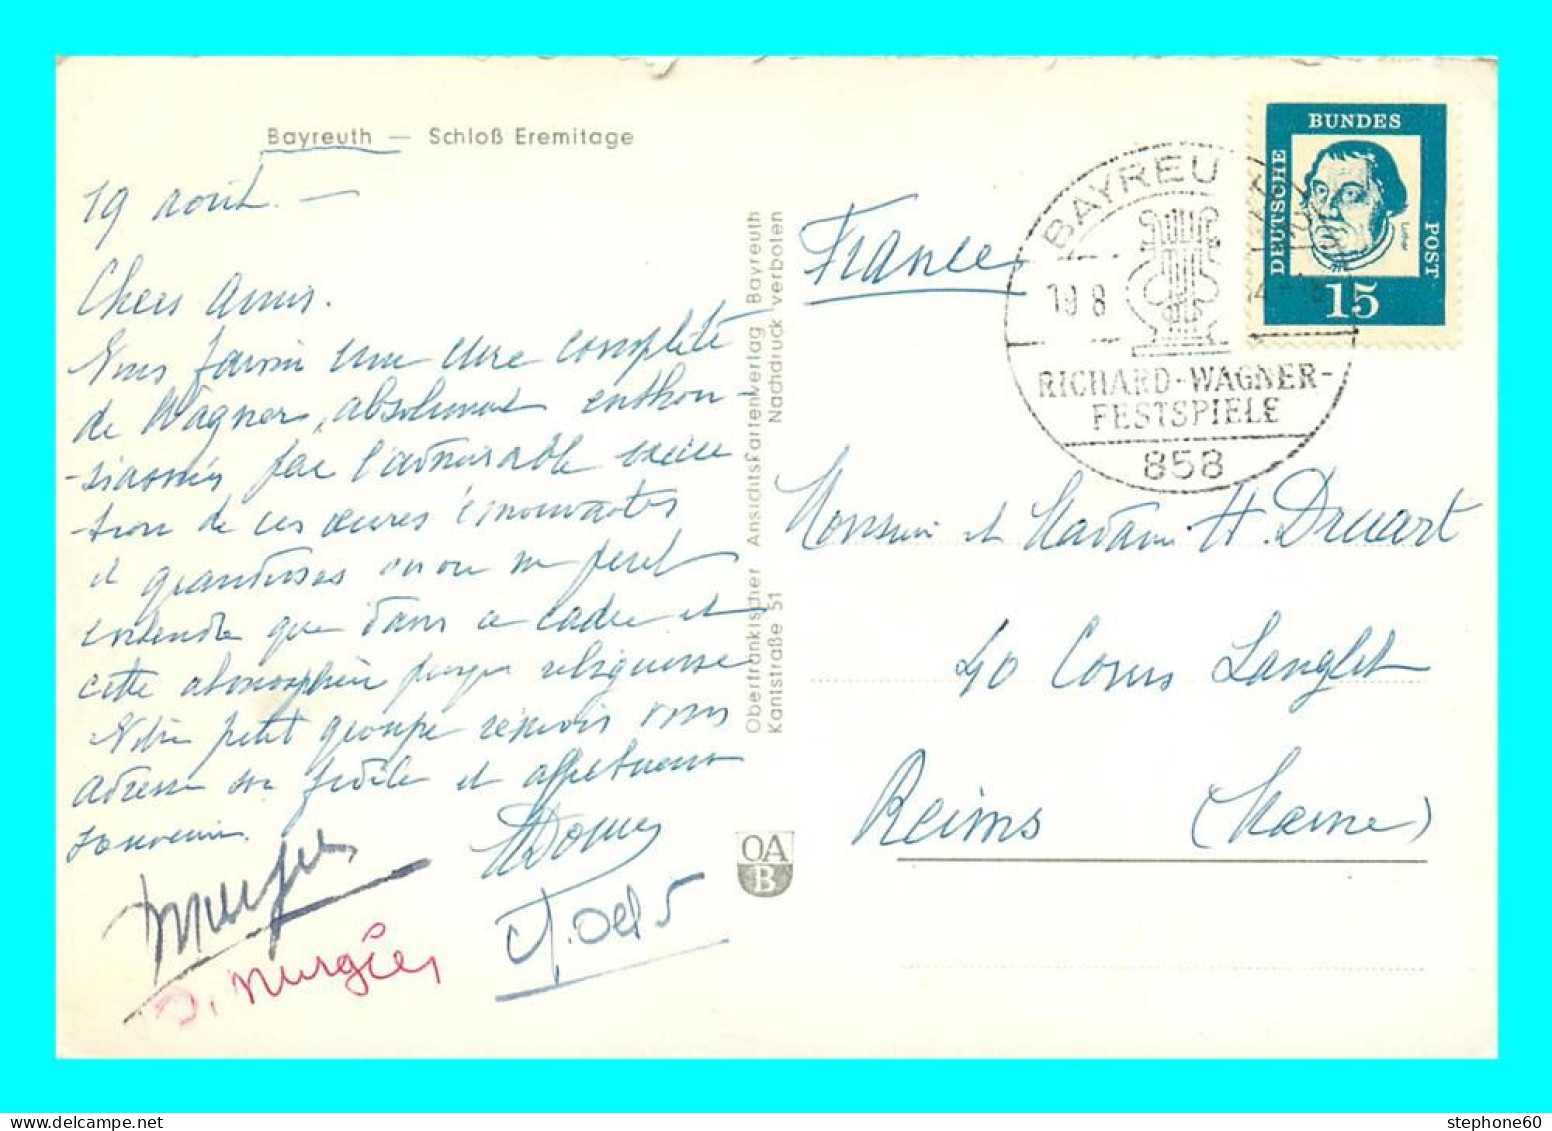 Bayreuth — Schloß Eremitage
19 août. —
Chers Amis.
Nous faisons une cure complète
de Wagner, absolument enthou-
-siasmés par l'admirable exécu
tion de ces œuvres émouvantes
et grandioses où on ne peut
entendre que dans ce cadre et
cette atmosphère presque religieuse
Notre petit groupe réuni vous
adresse son fidèle et affectueux
souvenir.
Obertränkischer Ansichtskartenverlag Bayreuth
Kantstraße 51 Nachdruck verboten
OA
B
France
BAYREU
19 8
RICHARD-WAGNER-
FESTSPIELE
858
DEUTSCHE
BUNDES
POST
Luther
15
Monsieur et Madame H. Druart
40 Cours Langlet
Reims (Marne)
stephone60